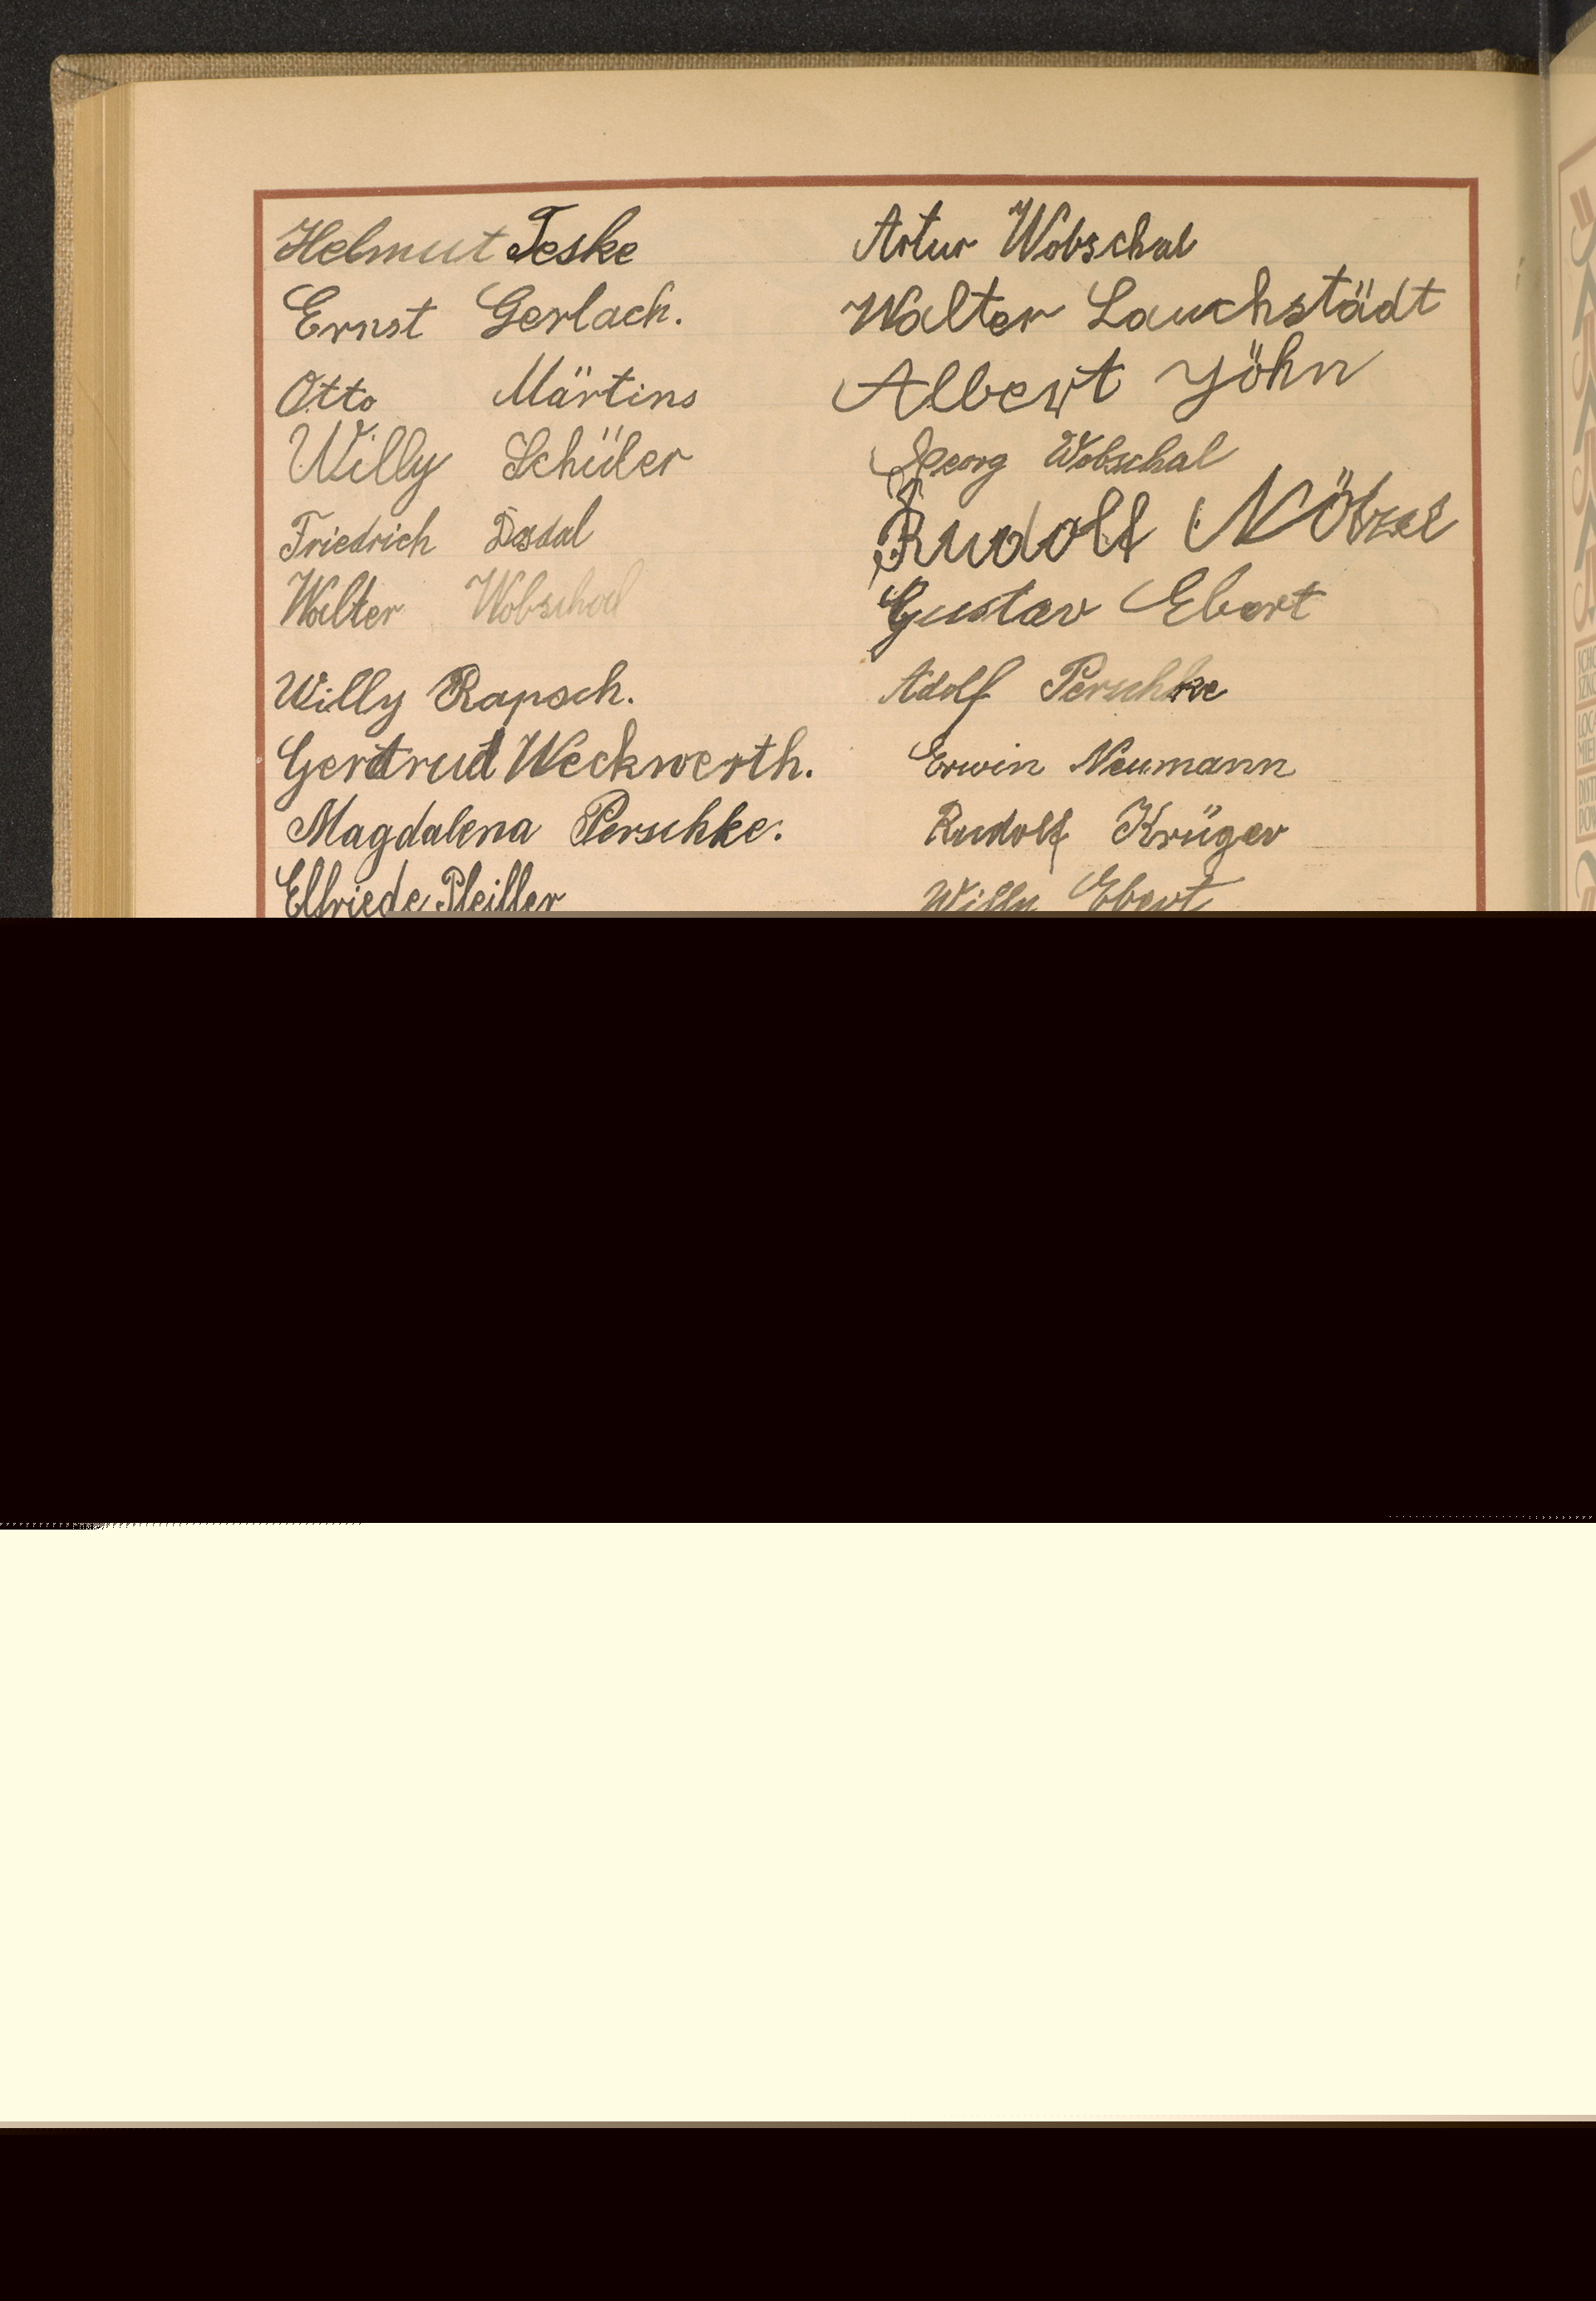 Helmut Teske
Ernst Gerlach.
Otto Märtins
Willy Schüler
Friedrich Dasdal
Walter Wobschal
Willy Rapsch.
Gertrud Weckwerth.
Magdalena Perschke.
Elfriede Pfeiffer
Artur Wobschal
Walter Lauchstädt
Albert Jöhn
Georg Wobschal
Rudolf Nötzel
Gustav Ebert
Adolf Perschke
Erwin Neumann
Rudolf Krüger
Willy Ebert